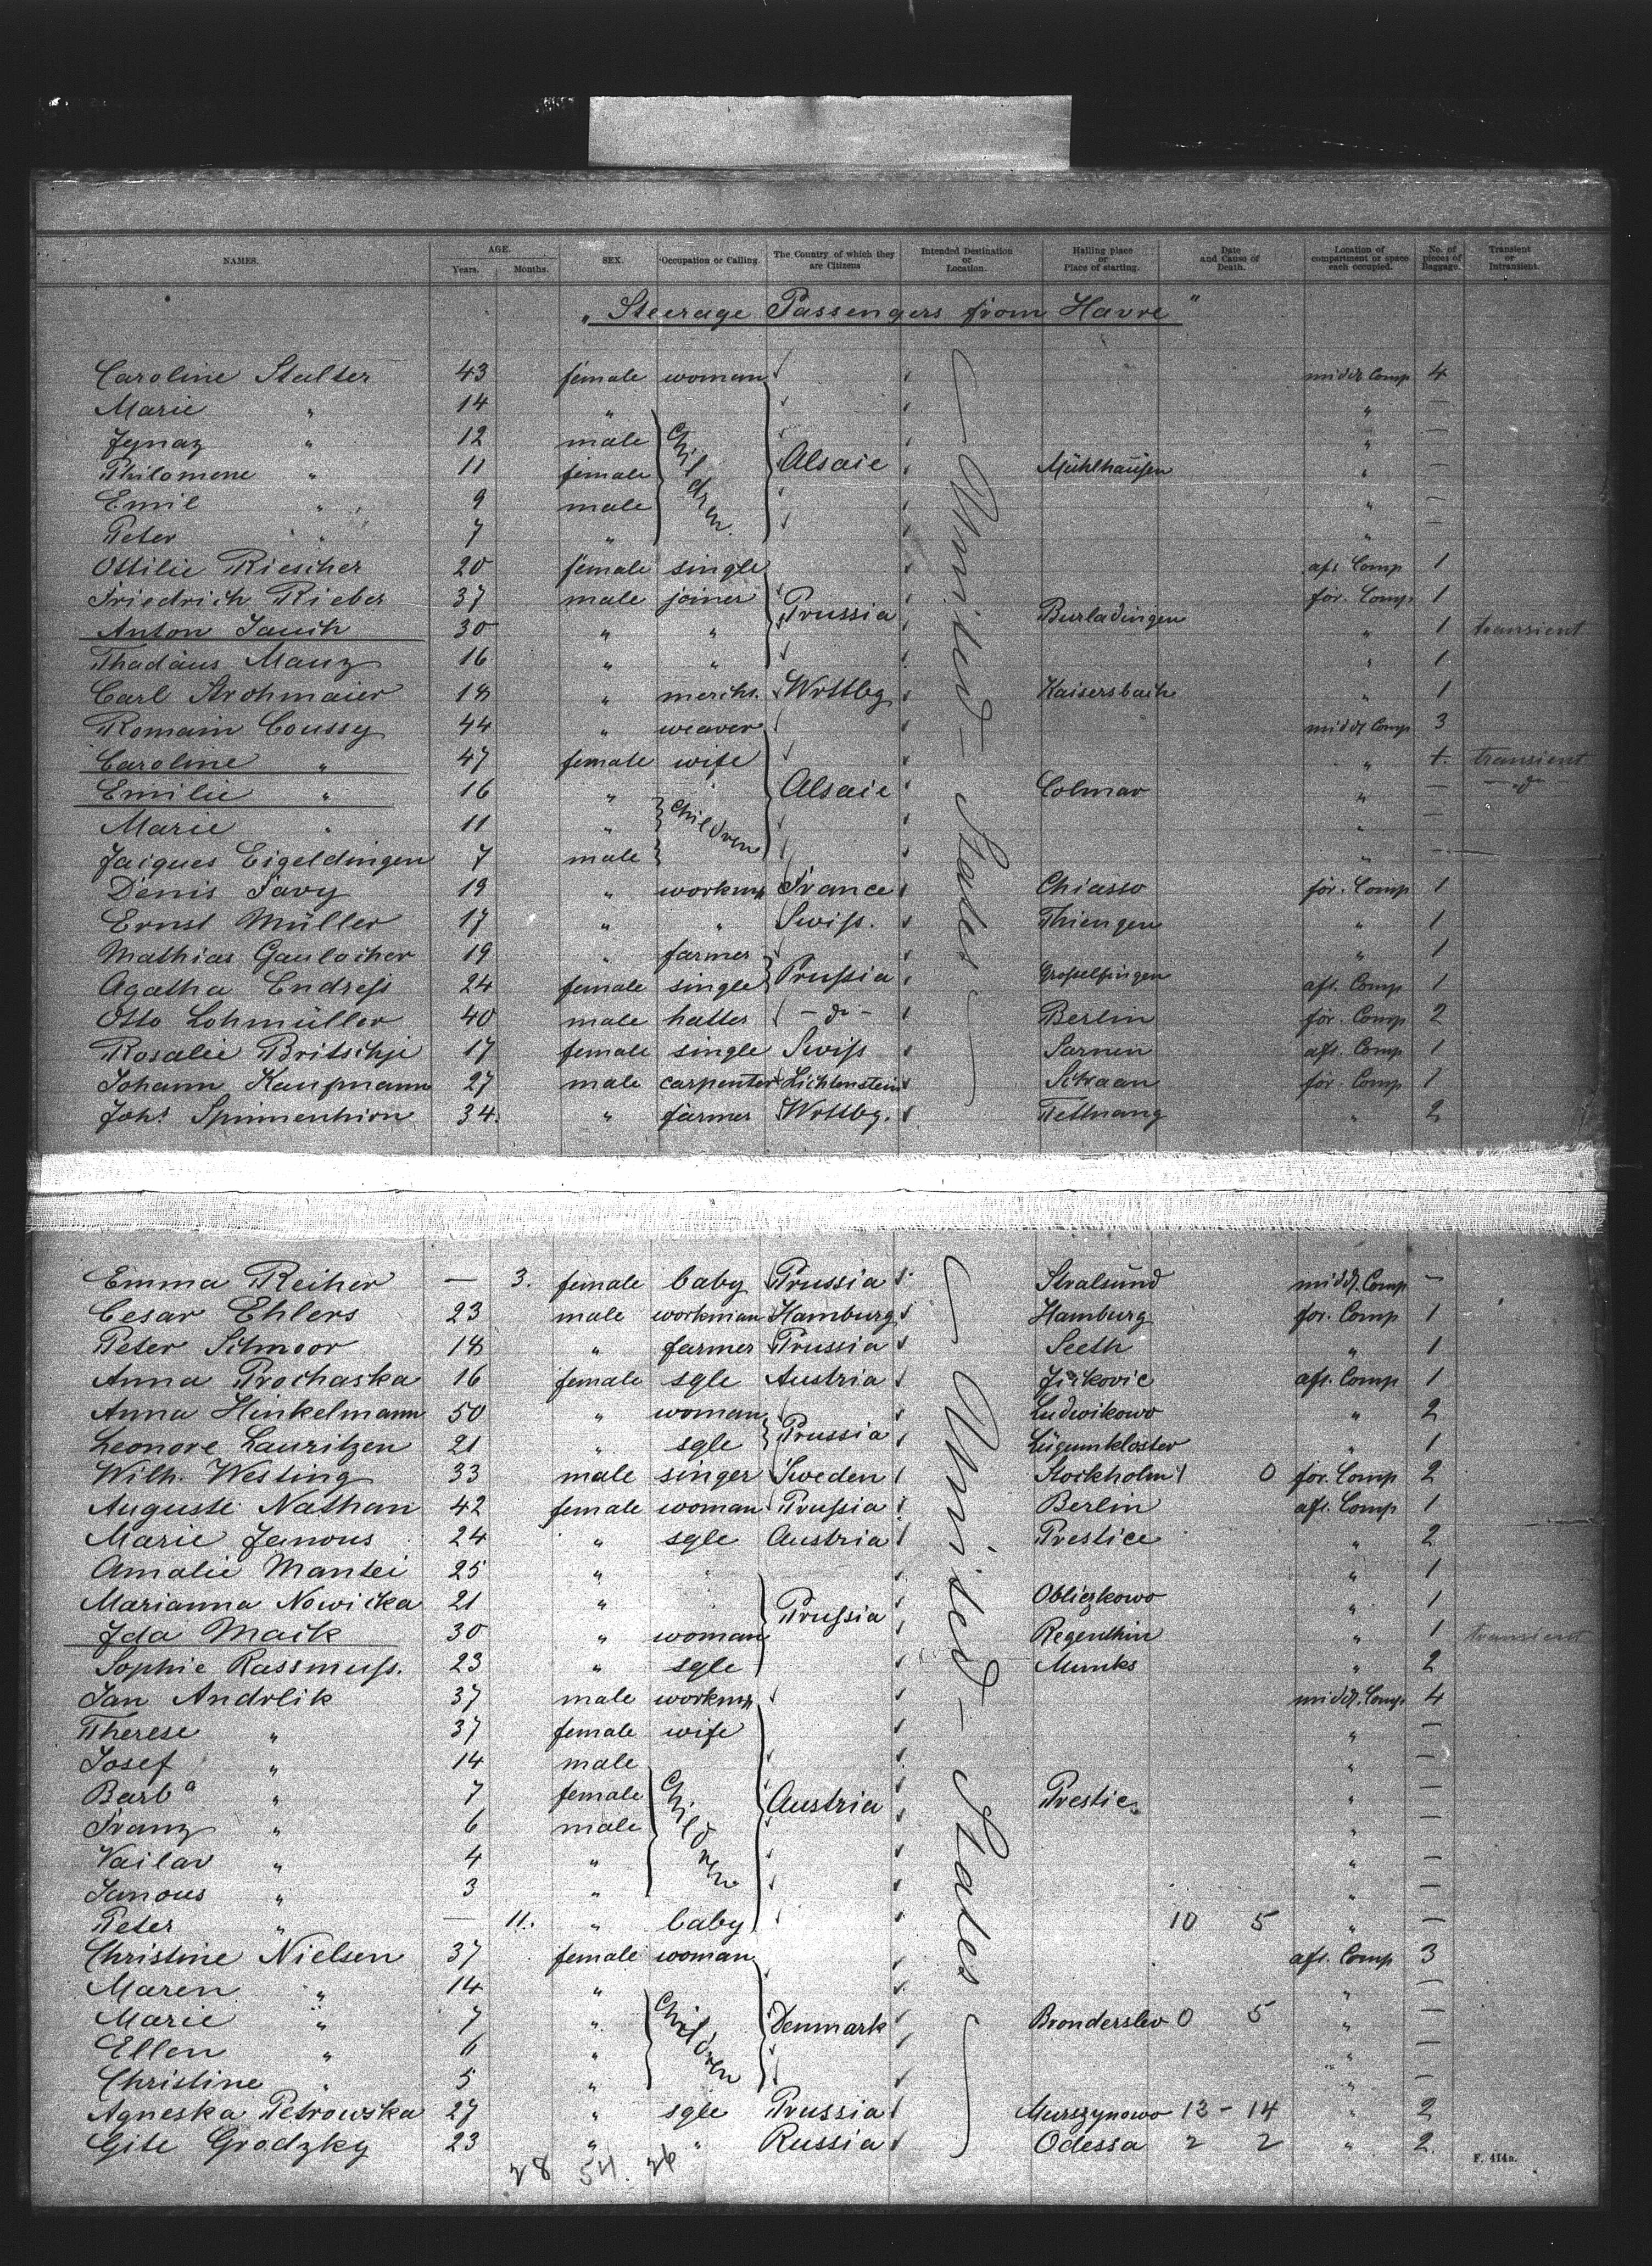 NAMES. AGE. Years. Months. SEX. Occupation or Calling. The Country of which they are Citizens Intended Destination or Location. Hailing place or Place of starting. Date and Cause of Death. Location of compartment or space each occupied. No. of pieces of Baggage. Transient or Intransient.
„Steerage Passengers from Havre"
Caroline Stalter 43 female woman midd. Comp 4
Marie " 14 " " —
Jgnaz " 12 male " —
Philomene " 11 female Children Alsaie Mühlhausen " —
Emil " 9 male " —
Peter " 7 " " —
Ottilie Riescher 20 female single aft. Comp 1
Friedrich Rieber 37 male joiner for. Comp 1
Anton Jauch 30 " " Prussia Burladingen " 1 transient
Thadäus Manz 16 " " " 1
Carl Strohmaier 18 " merch. Wrttbg Kaisersbach " 1
Romain Coussy 44 " weaver midd Comp 3
Caroline " 47 female wife " transient
Emilie " 16 " Alsaie Colmar " — do
Marie " 11 " Children " —
Jacques Eigeldingen 7 male " —
Denis Favy 19 " workm France Chiasso for. Comp 1
Ernst Müller 17 " " Swiss. Thiengen " 1
Mathias Gaulocher 19 " farmer " 1
Agatha Endress 24 female single Prussia Grosselfingen aft. Comp 1
Otto Lohmüller 40 male hatter - do - Berlin for. Comp 2
Rosalie Britschgi 17 female single Swiss Sarnen aft. Comp 1
Johann Kaufmann 27 male carpenter Lichtenstein Schaan for. Comp 1
Johs Spinnenhirn 34. " farmer Wrttbg. Tettnang " 2
— United — States —
Emma Reiher — 3. female baby Prussia Stralsund midd. Comp —
Cesar Ehlers 23 male workman Hamburg Hamburg for. Comp 1
Peter Schmoor 18 " farmer Prussia Seeth " 1
Anna Prochaska 16 female sgle Austria Jirkovic aft. Comp 1
Anna Hinkelmann 50 " woman Ludwikowo " 2
Leonore Lauritzen 21 " sgle Prussia Lügumkloster " 1
Wilh. Westing 33 male singer Sweden Stockholm 0 for. Comp 2
Auguste Nathan 42 female woman Prussia Berlin aft. Comp 1
Marie Janous 24 " sgle Austria Prestice " 2
Amalie Mantei 25 " " " 1
Marianna Nowicka 21 " " Prussia Obliezkowo " 1
Jda Maik 30 " woman Regenthin " 1 transient
Sophie Rassmuss. 23 " sgle Munks " 2
Jan Andrlik 37 male workm midd. Comp 4
Therese " 37 female wife " —
Josef " 14 male " —
Barba " 7 female Children Austria Prestic " —
Franz " 6 male " —
Vailav " 4 " " —
Janous " 3 " " —
Peter " — 11. " baby 10 5 " —
Christine Nielsen 37 female woman aft. Comp 3
Maren " 14 " " —
Marie " 7 " Children Denmark Bronderslev 0 5 " —
Ellen " 6 " " —
Christine " 5 " " —
Agneska Petrowska 27 " sgle Prussia Murszynowo 13 - 14 " 2
Gite Grodzky 23 " " Russia Odessa 2 2 " 2
— United — States —
28 54. 26
F. 414a.